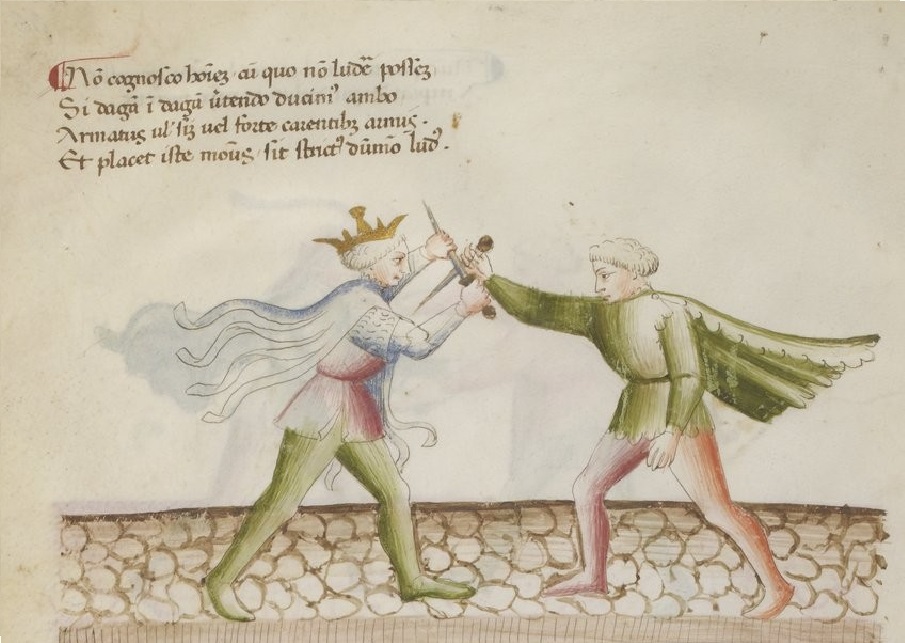 Nō cognosco hoīeȝ cū quo nō ludē̄ posseȝ
Si dagā ī dagā ūtendo ducimꝰ ambo
Armatus ul' siȝ vel forte carentibȝ armis.
Et placet iste modus sit strictꝰ dūmō ludꝰ.